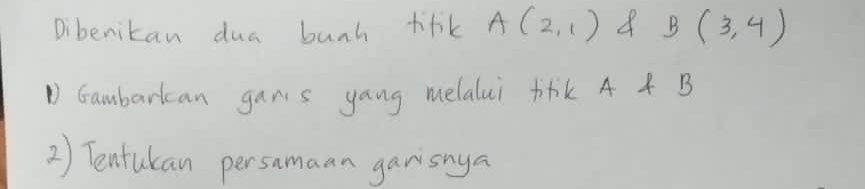 Diberikan dua buah titik A (2,1) & B (3,4)
1) Gambarkan garis yang melalui titik A & B
2) Tentukan persamaan garisnya